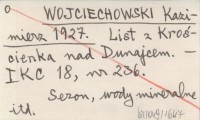 WOJCIECHOWSKI Kazi-
mierz 1927. List z Kroś-
cienka nad Dunajcem. —
IKC 18, nr 236.
Sezon, wody mineralne
itd.